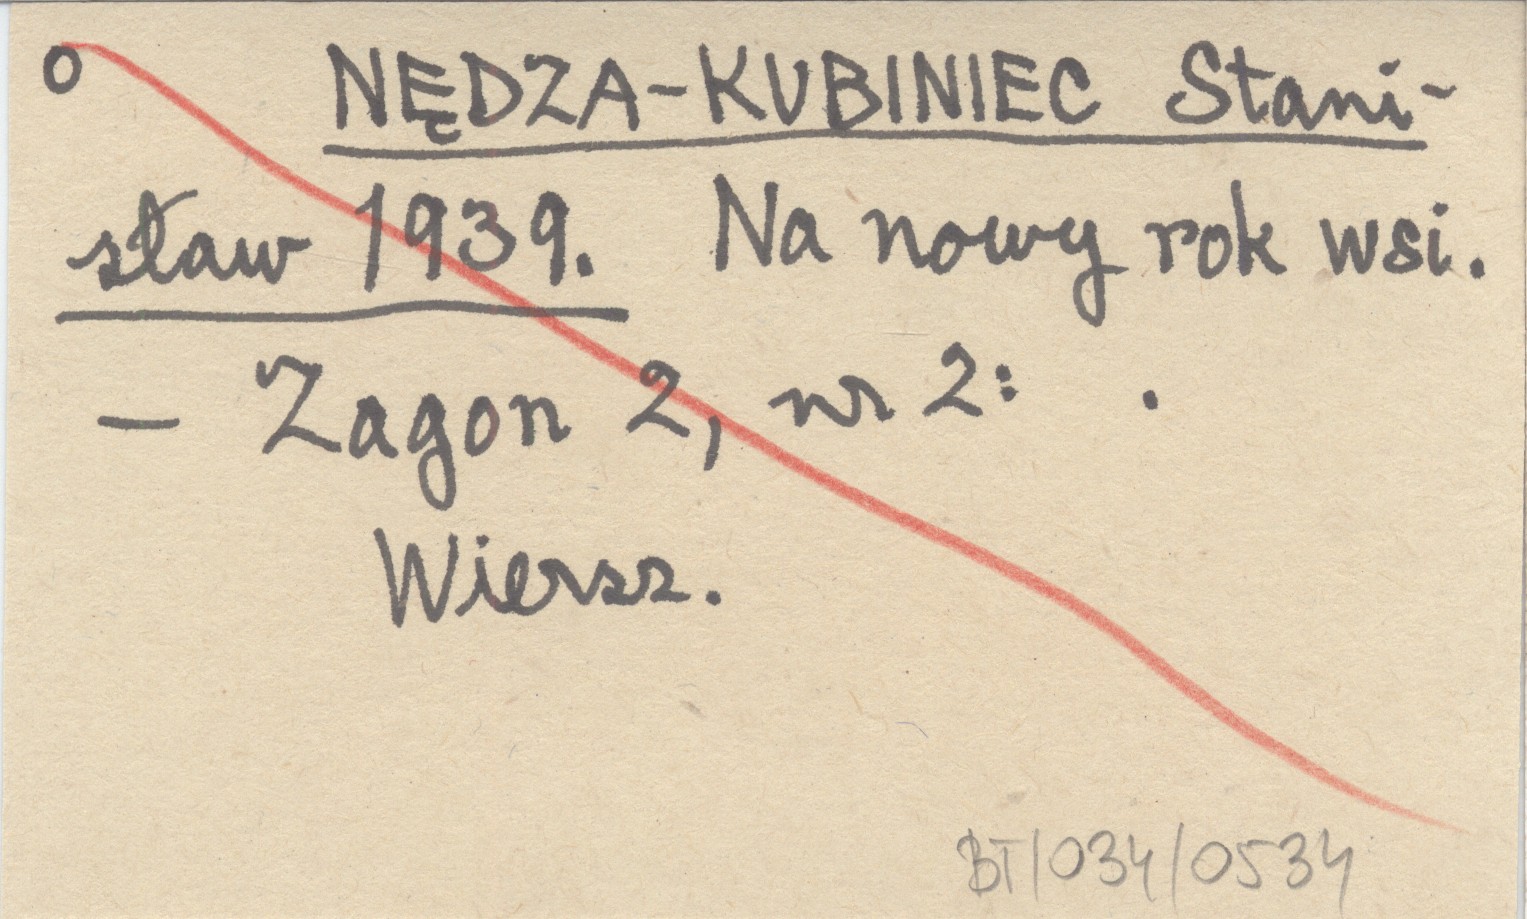 o NĘDZA-KUBINIEC Stani-
sław 1939. Na nowy rok wsi.
— Zagon 2, nr 2: .
Wiersz.
BT/034/0534